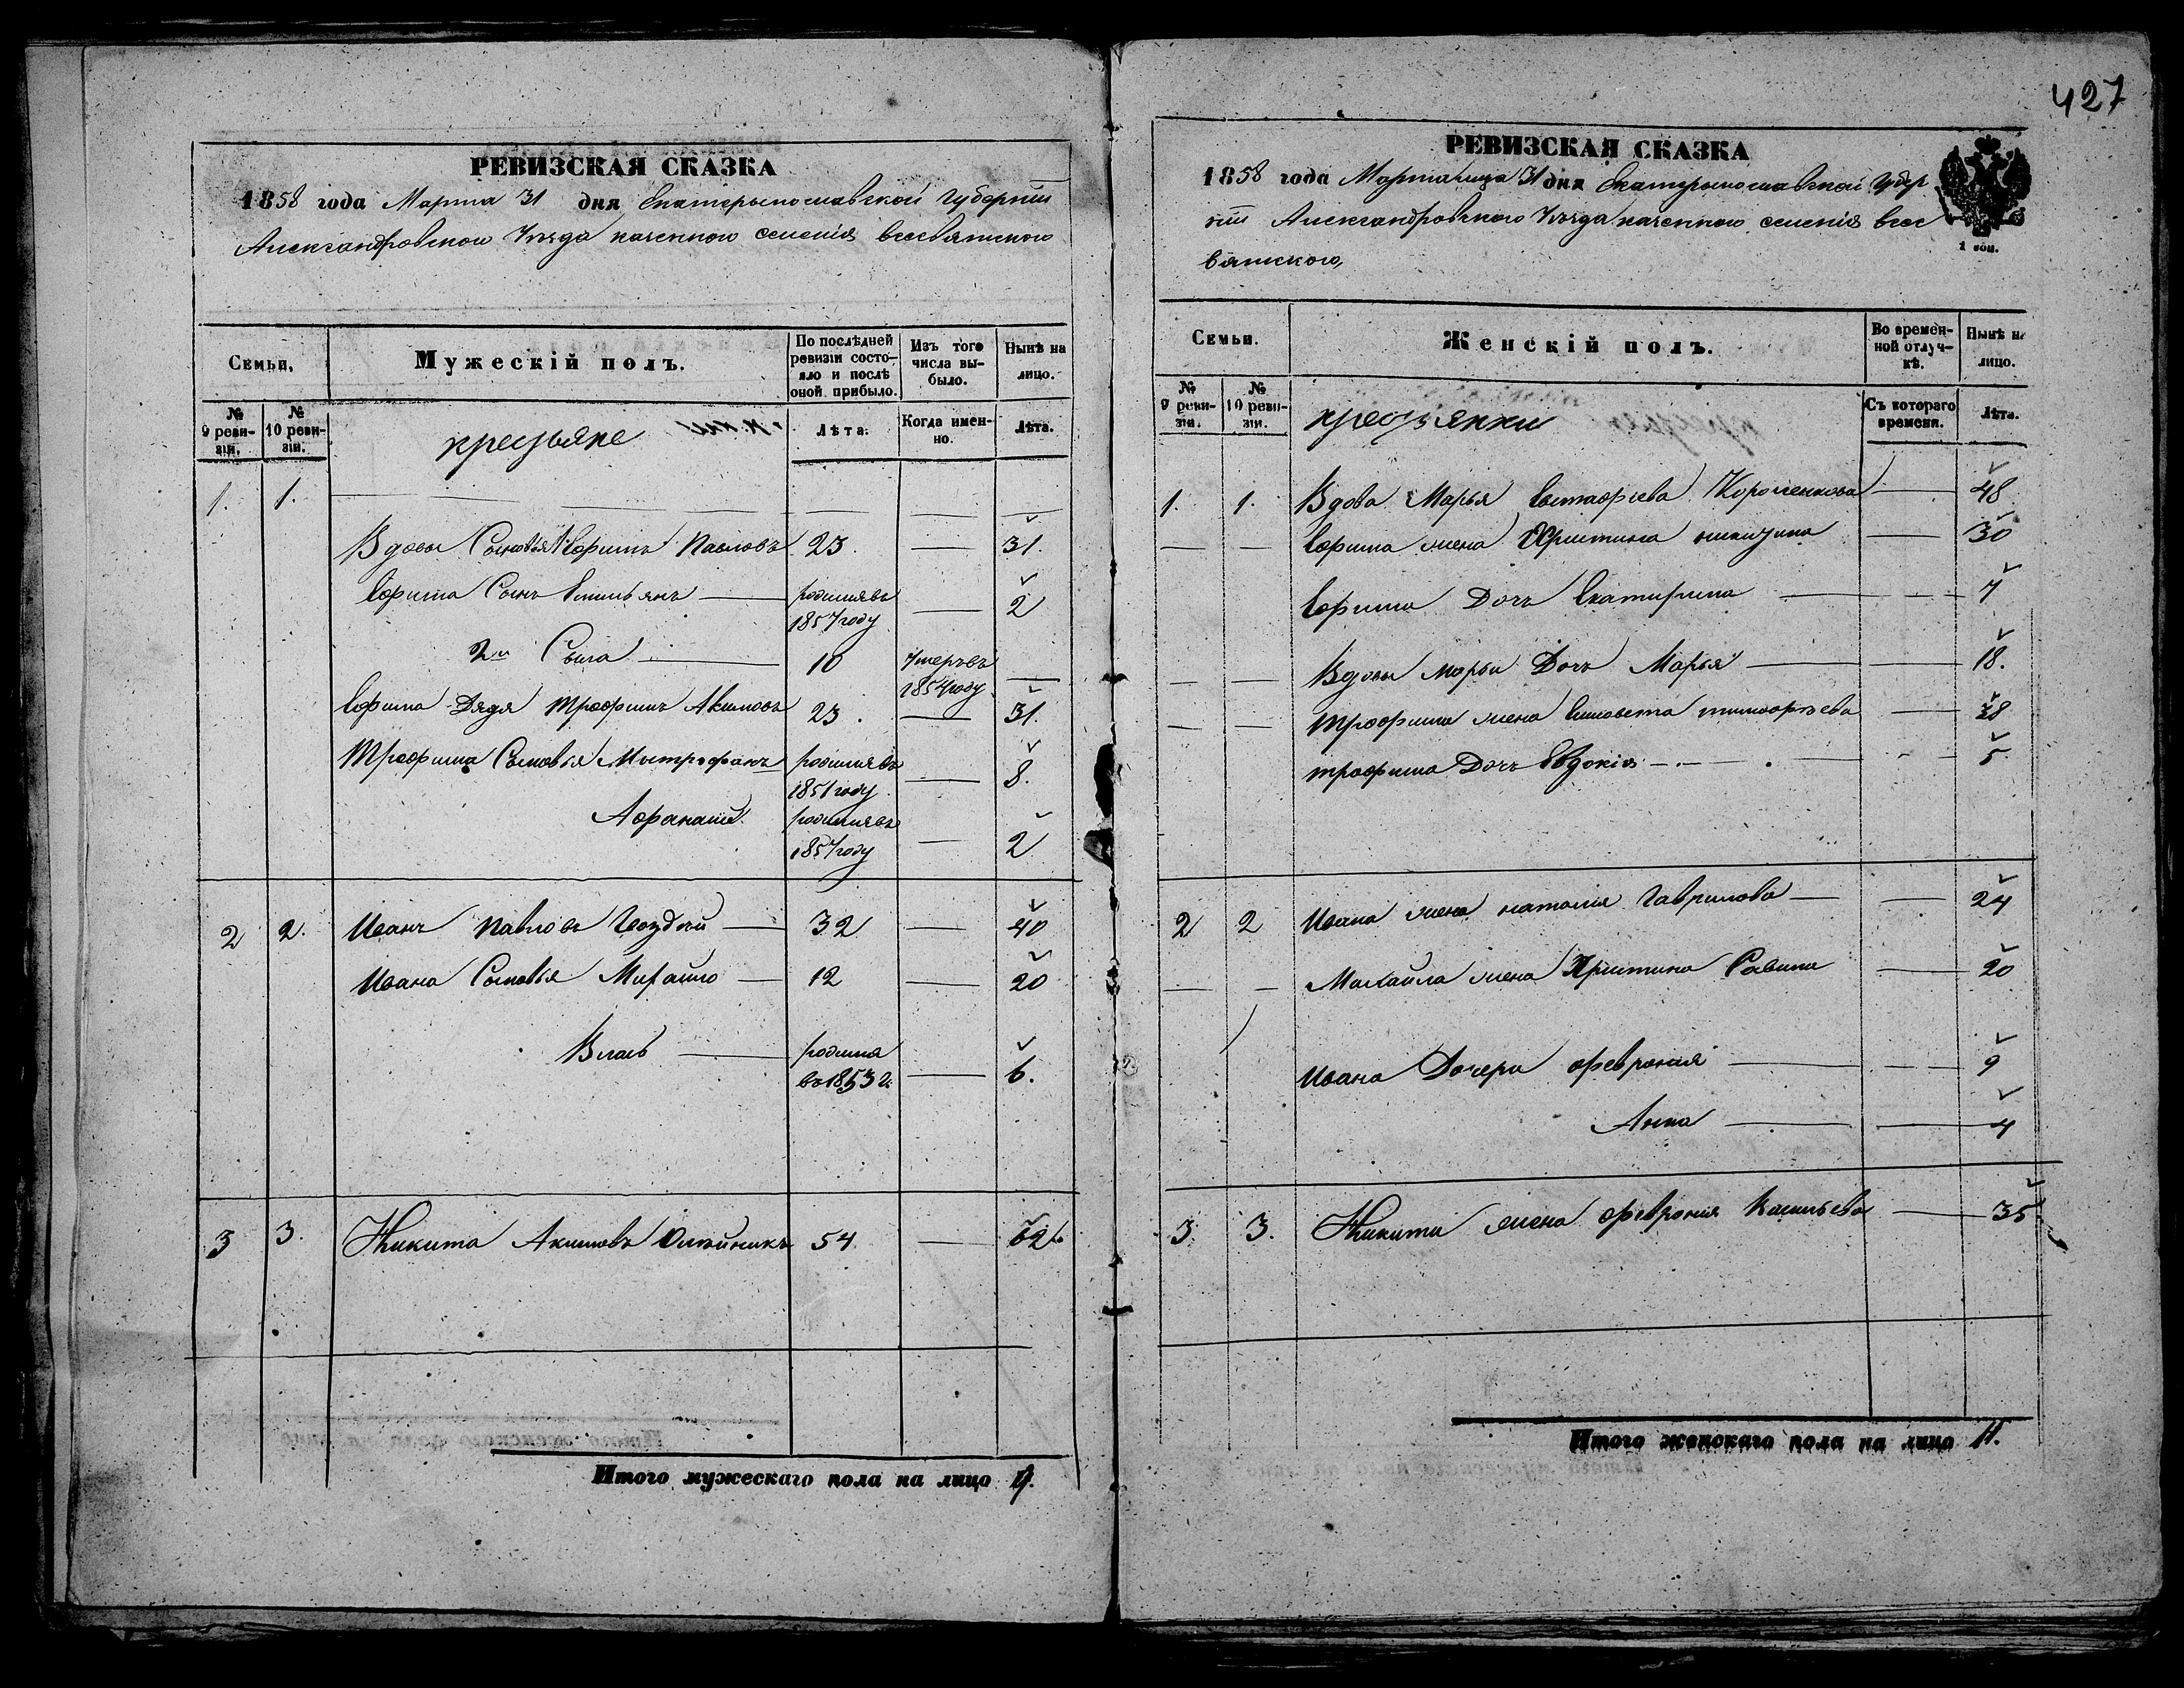 427
РЕВИЗСКАЯ СКАЗКА
1858 года Марта 31 дня Екатеринославской Губернии
Александровского Уезда казенного селения всесвятского
Семьи. Мужескій полъ. По послѣдней ревизіи состояло и послѣ оной прибыло. Изъ того числа выбыло. Нынѣ на лицо.
№ 9 ревизіи. № 10 ревизіи. крестьяне Лѣта. Когда именно. Лѣта.
1. 1.
Вдовы Сыновья 1й Ефимъ Павловъ 23. 31.
Ефима Сынъ Емильянъ родился въ 1857 году 2
2й Сына 10 Умеръ въ 1854 году
Ефима Дядя Трофимъ Акимовъ 23. 31.
Трофима Сыновья Митрофанъ родился въ 1851 году 8.
Афанасий родился въ 1857 году 2
2 2. Иванъ Павловъ Гвоздый 32 40
Ивана Сыновья Михайло 12 20
Власъ родился въ 1853 г. 6.
3 3. Никита Акимовъ Олейникъ 54 62.
Итого мужескаго пола на лицо 9.
РЕВИЗСКАЯ СКАЗКА
1858 года Марта месяца 31 дня Екатеринославской Губер
нии Александровского Уезда казенного селения всес
вятского,
1 коп.
Семьи. Женскій полъ. Во временной отлучкѣ. Нынѣ на лицо.
№ 9 ревизіи. № 10 ревизіи. крестьянки Съ котораго времени. Лѣта.
1. 1. Вдова Марья Евстафьева 48
Ефима жена Христина никитина 30
Ефима Дочь Екатирина 7
Вдовы марьи Дочь Марья 18.
Трофима жена Елисавета тимофеева 28
трофима Дочь Евдокія 5.
2 2 Ивана жена наталия Гаврилова 24
Михайла жена Христина Савина 20
Ивана Дочери феврония 9
Анна 4
3. 3. Никиты жена феврония Васильева 35
Итого женскаго пола на лицо 11.